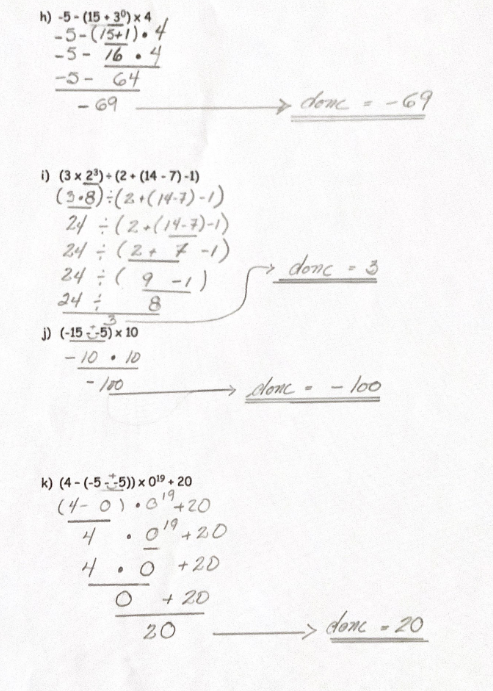 h) -5 - (15 + 3⁰) x 4
-5-(15+1)•4
-5- 16 •4
-5- 64
-69 → donc = -69
i) (3 x 2³) ÷ (2 + (14 - 7) -1)
(3•8)÷(2+(14-7)-1)
24 ÷(2+(14-7)-1)
24 ÷ (2+ 7 -1)
24 ÷ ( 9 -1)
24 ÷ 8
3 → donc = 3
j) (-15 - + -5) x 10
-10 • 10
-100 → donc = -100
k) (4 - (-5 - + -5)) x 0¹⁹ + 20
(4- 0)•0¹⁹+20
4 •0¹⁹+20
4 • 0 +20
0 +20
20 → donc = 20